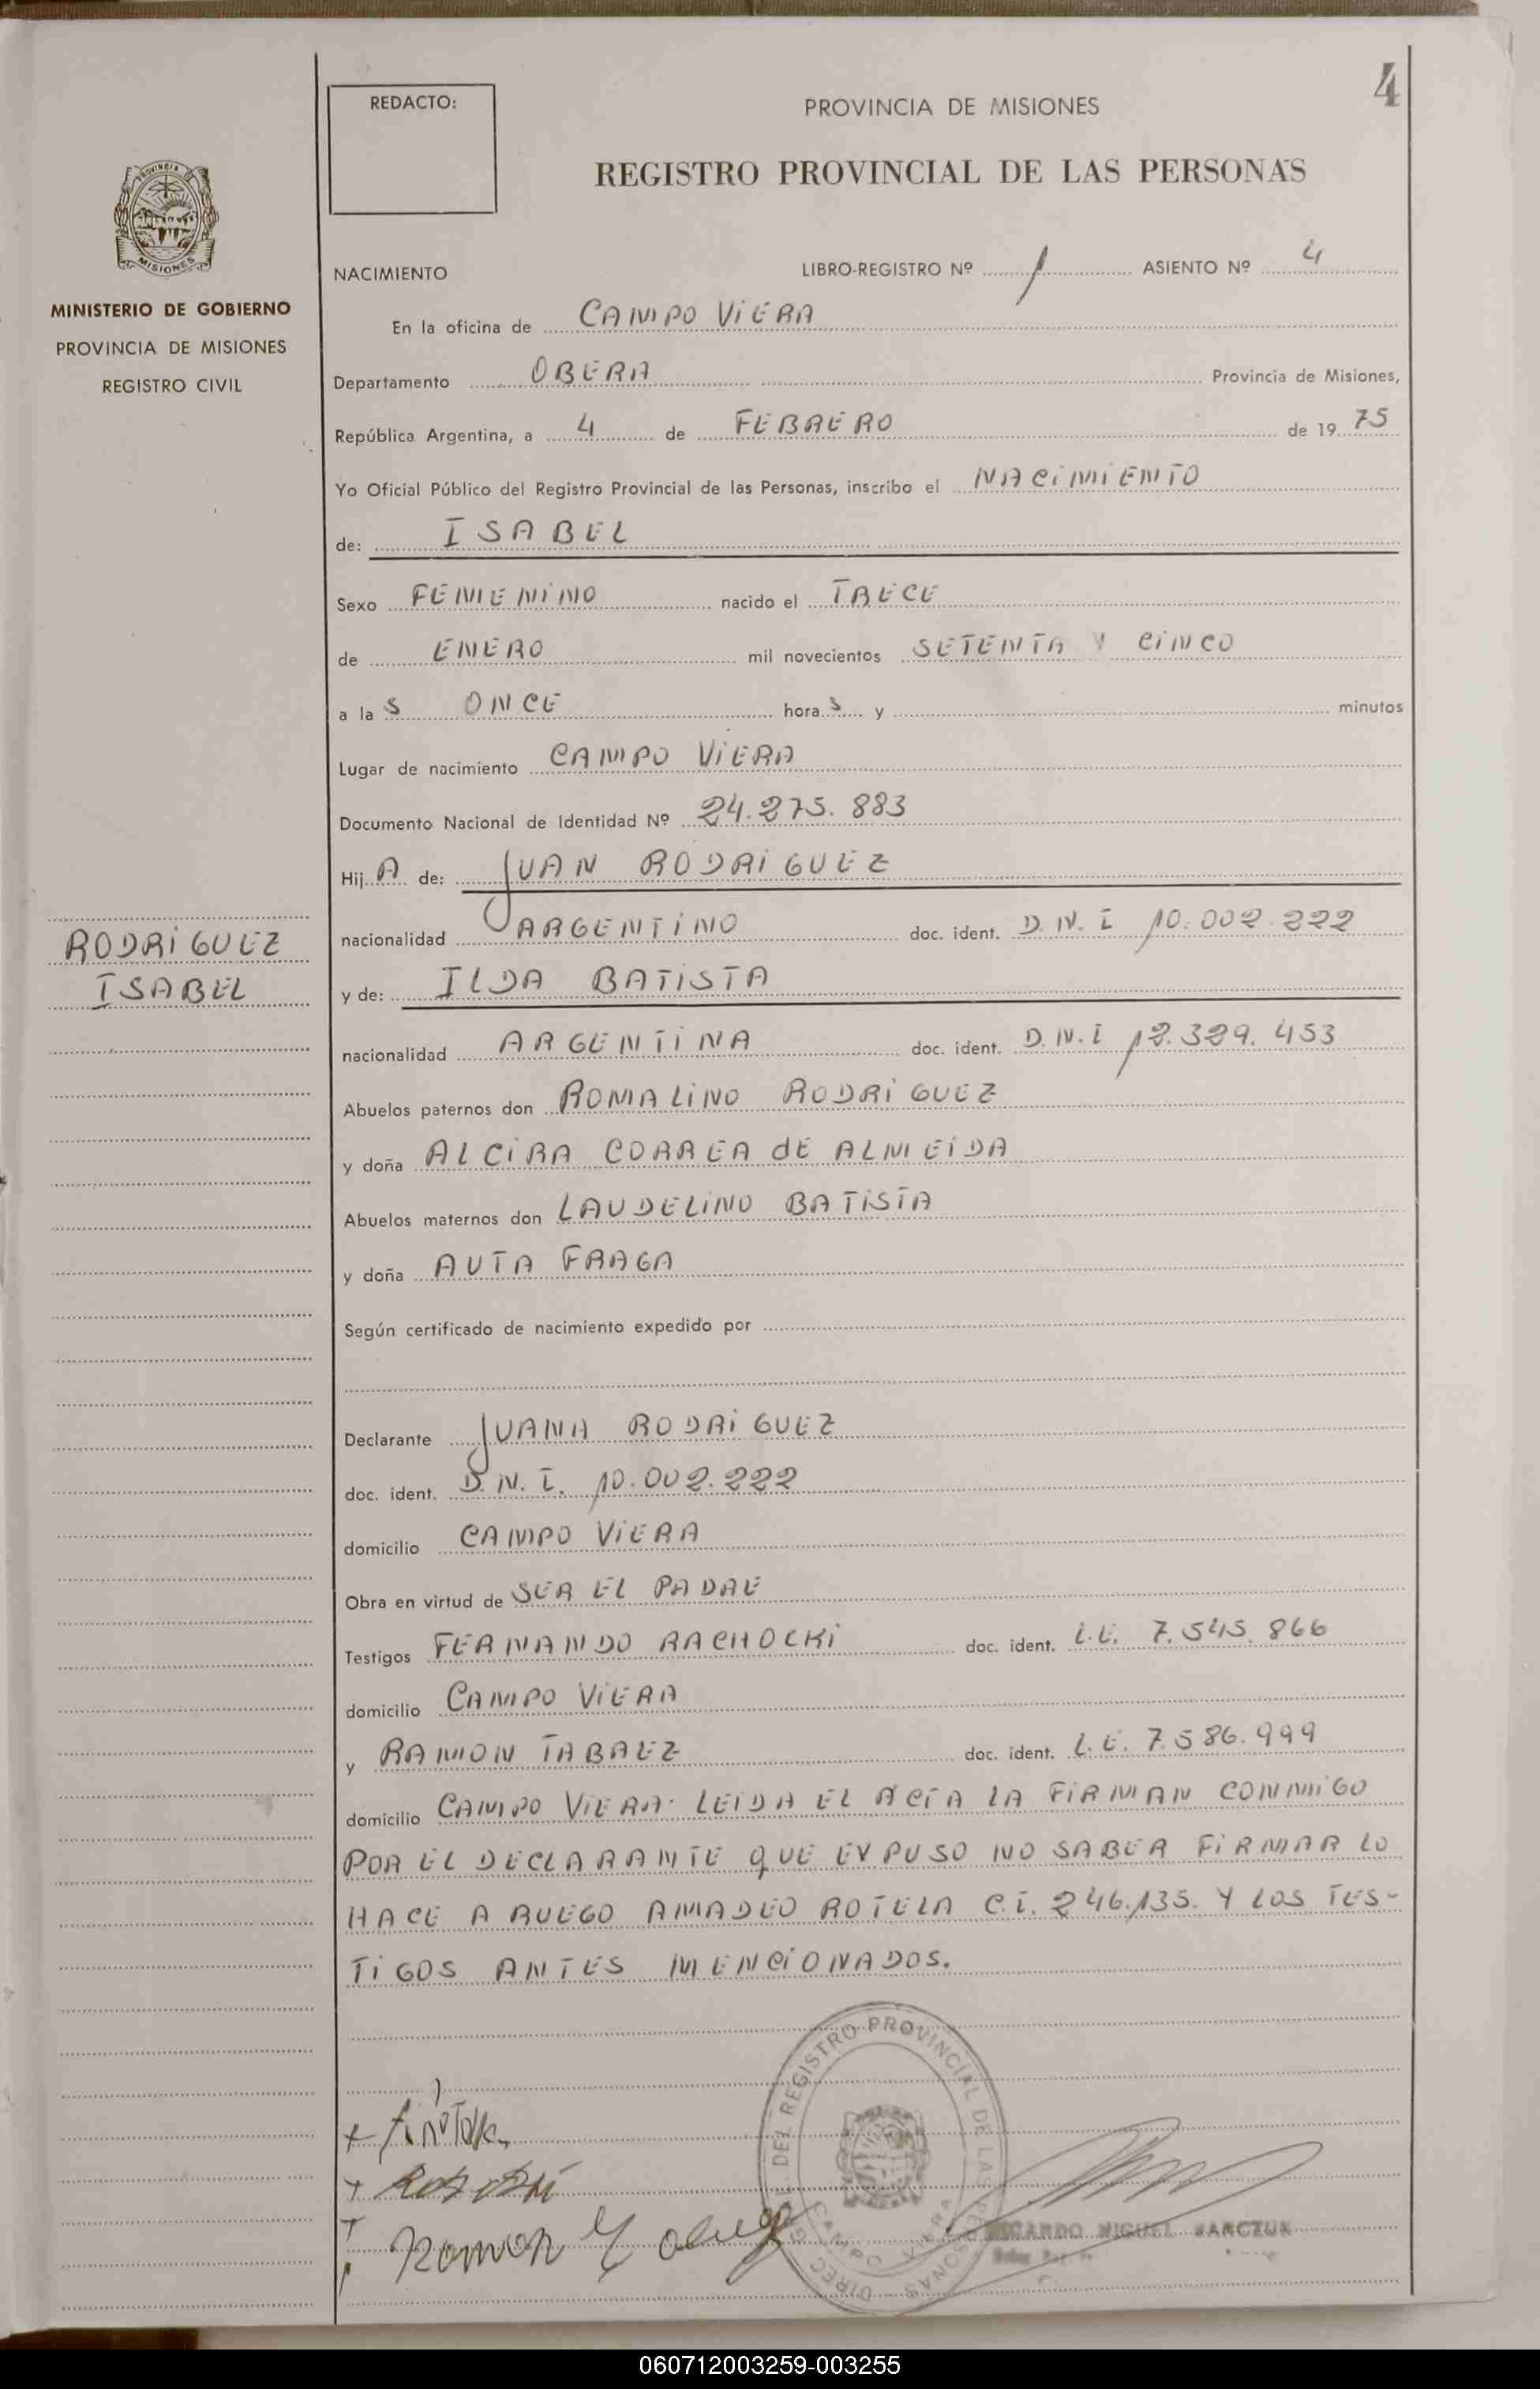 4
REDACTO:
PROVINCIA DE MISIONES
REGISTRO PROVINCIAL DE LAS PERSONAS
PROVINCIA DE MISIONES
MINISTERIO DE GOBIERNO
PROVINCIA DE MISIONES
REGISTRO CIVIL
RODRiGUEZ
ISABEL
NACIMIENTO LIBRO-REGISTRO Nº 1 ASIENTO Nº 4
En la oficina de CAMPO ViERA
Departamento OBERA Provincia de Misiones,
República Argentina, a 4 de FEBRERO de 1975
Yo Oficial Público del Registro Provincial de las Personas, inscribo el NACiMiENTO
de: ISABEL
Sexo FEMENiNO nacido el TRECE
de ENERO mil novecientos SETENTA Y CiNCO
a las ONCE horas y minutos
Lugar de nacimiento CAMPO ViERA
Documento Nacional de Identidad Nº 24.275.883
Hij A de: JUAN RODRiGUEZ
nacionalidad ARGENTiNO doc. ident. D.N.I 10.002.222
y de: ILDA BATiSTA
nacionalidad ARGENTiNA doc. ident. D.N.I 12.329.453
Abuelos paternos don ROMALiNO RODRiGUEZ
y doña ALCiRA CORREA dE ALMEiDA
Abuelos maternos don LAUDELiNO BATiSTA
y doña AUTA FRAGA
Según certificado de nacimiento expedido por
Declarante JUANA RODRiGUEZ
doc. ident. D.N.I. 10.002.222
domicilio CAMPO ViERA
Obra en virtud de SER EL PADRE
Testigos FERNANDO RACHOCKi doc. ident. L.E. 7.545.866
domicilio CAMPO ViERA
y RAMON TABAREZ doc. ident. L.E. 7.586.999
domicilio CAMPO ViERA. LEiDA EL ACTA LA FiRMAN CONMiGO
POR EL DECLARANTE qUE EXPUSO NO SABER FiRMAR LO
HACE A RUEGO AMADEO ROTELA C.I. 246.135. Y LOS TES-
TiGOS ANTES MENCiONADOS.
DIREC. GRAL. DEL REGISTRO PROVINCIAL DE LAS PERSONAS
CAMPO VIERA
Ramon
RICARDO MIGUEL
060712003259-003255